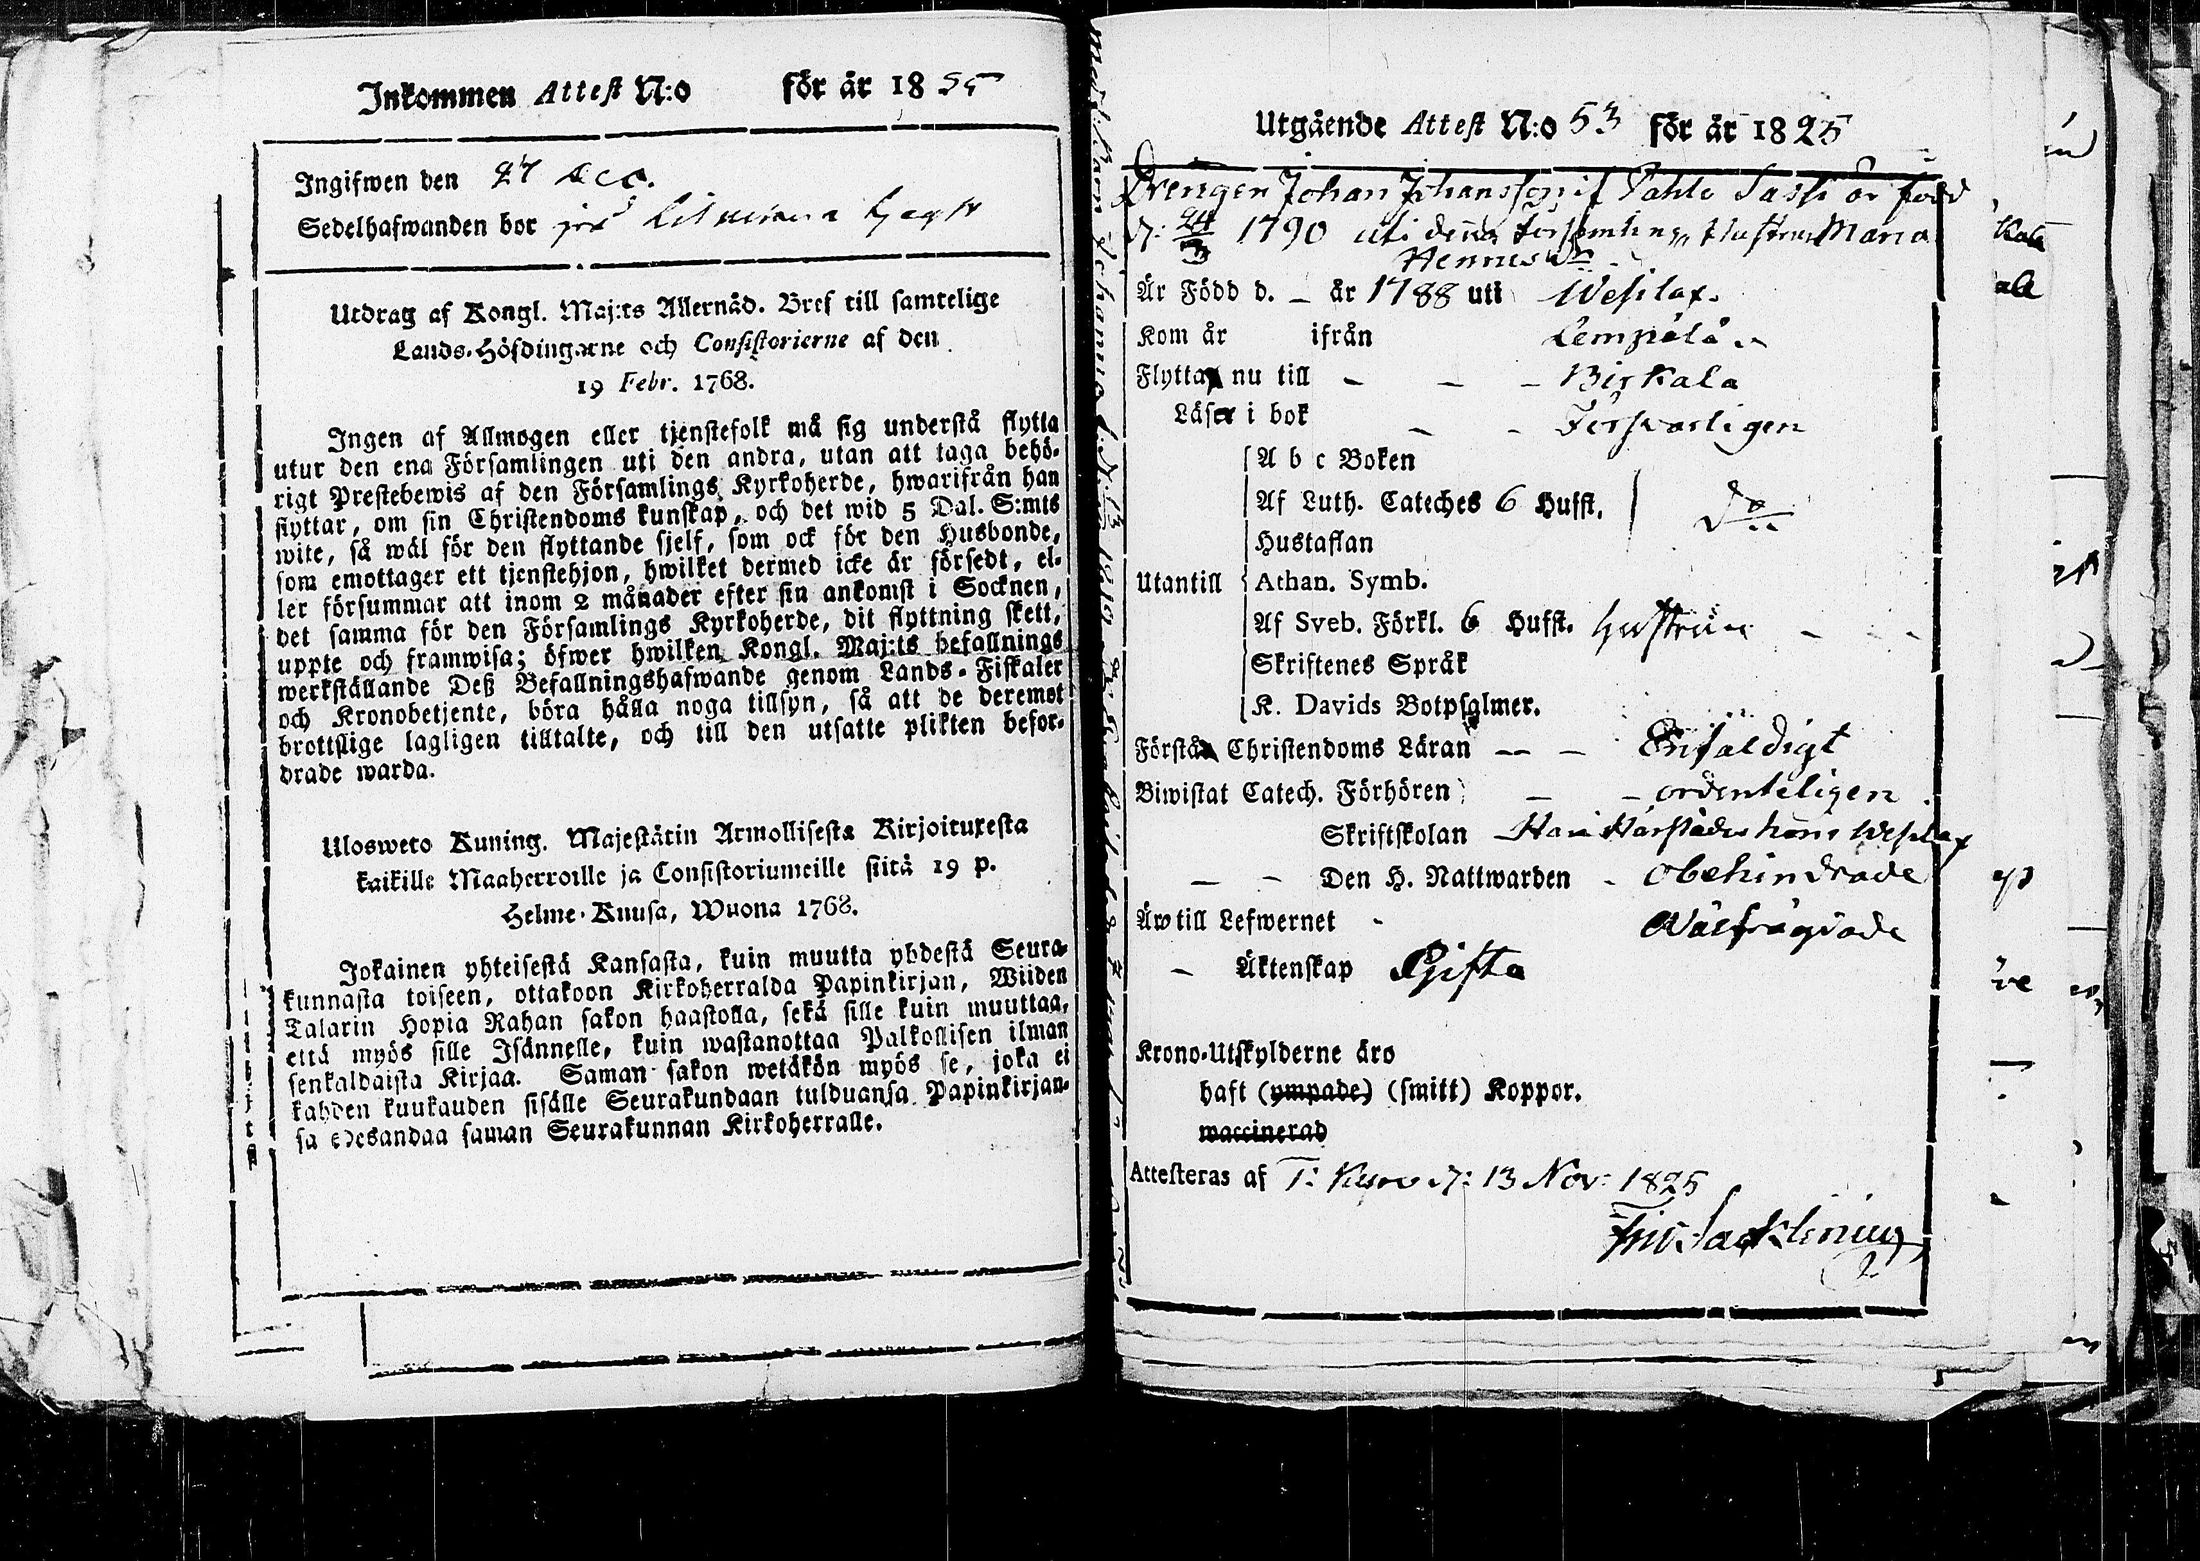 Inkommen Attest N:o för år 18
Ingifwen den 27 Dec.
Sedelhafwanden bor
Utdrag af Kongl. Maj:ts Allernåd. Bref till samtelige
Lands-Höfdingarne och Consistorierne af den
19 Febr. 1768.
Ingen af Allmogen eller tjenstefolk må sig understå flytta
utur den ena Församlingen uti den andra, utan att taga behö-
rigt Prestebewis af den Församlings Kyrkoherde, hwarifrån han
flyttar, om sin Christendoms kunskap, och det wid 5 Dal. S:mts
wite, så wäl för den flyttande sjelf, som ock för den Husbonde,
som emottager ett tjenstehjon, hwilket dermed icke är försedt, el-
ler försummar att inom 2 månader efter sin ankomst i Socknen,
det samma för den Församlings Kyrkoherde, dit flyttning skett,
uppte och framwisa; öfwer hwilken Kongl. Maj:ts befallnings
werkställande Deß Befallningshafwande genom Lands-Fiskaler
och Kronobetjente, böra hålla noga tillsyn, så att de deremot
brottslige lagligen tilltalte, och till den utsatte plikten befor-
drade warda.
Ulosweto Kuning. Majestätin Armollisesta Kirjoituxesta
kaikille Maaherroille ja Consistoriumeille siitä 19 p.
Helme-Kuusa, Wuona 1768.
Jokainen yhteisestä Kansasta, kuin muutta yhdestä Seura-
kunnasta toiseen, ottakoon Kirkoherralda Papinkirjan, Wiiden
Talarin Hopia Rahan sakon haastolla, sekä sille kuin muuttaa,
että myös sille Isännelle, kuin wastanottaa Palkollisen ilman
senkaldaista Kirjaa. Saman sakon wetäkön myös se, joka ei
kahden kuukauden sisälle Seurakundaan tulduansa Papinkirjan-
sa edesandaa saman Seurakunnan Kirkoherralle.
Utgående Attest N:o 53 för år 1825
Drengen Johan Johansson if Pahlo Sassi är född
d: 24/3 1790 uti denna Församling, Hustrun Maria
Är Född d. – år 1788 uti Wesilax.
Kom år ifrån Lempälä
Flyttar nu till – – – Birkala
Läser i bok – – Försvarligen
A b c Boken
Af Luth. Cateches 6 Hufst. do
Hustaflan
Utantill Athan. Symb.
Af Sveb. Förkl. 6 Hufst. hustrun – – –
Skriftenes Språk
K. Davids Botpsalmer.
Förstår Christendoms Läran – – Enfaldigt
Biwistat Catech. Förhören – – ordenteligen
Skriftskolan
– – Den H. Nattwarden – obehindrade
Äw till Lefwernet - Wälfrägdade
– Äktenskap Gifta
Krono-Utskylderne äro
haft (ympade) (smitt) Koppor.
waccinerad
Attesteras af T: Kyro d: 13 Nov: 1825